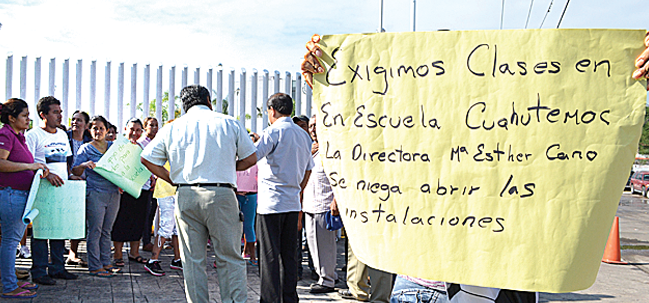 Exigimos Clases en
En Escuela Cuahutemoc
La Directora Mª Esther Cano
Se niega abrir las
instalaciones